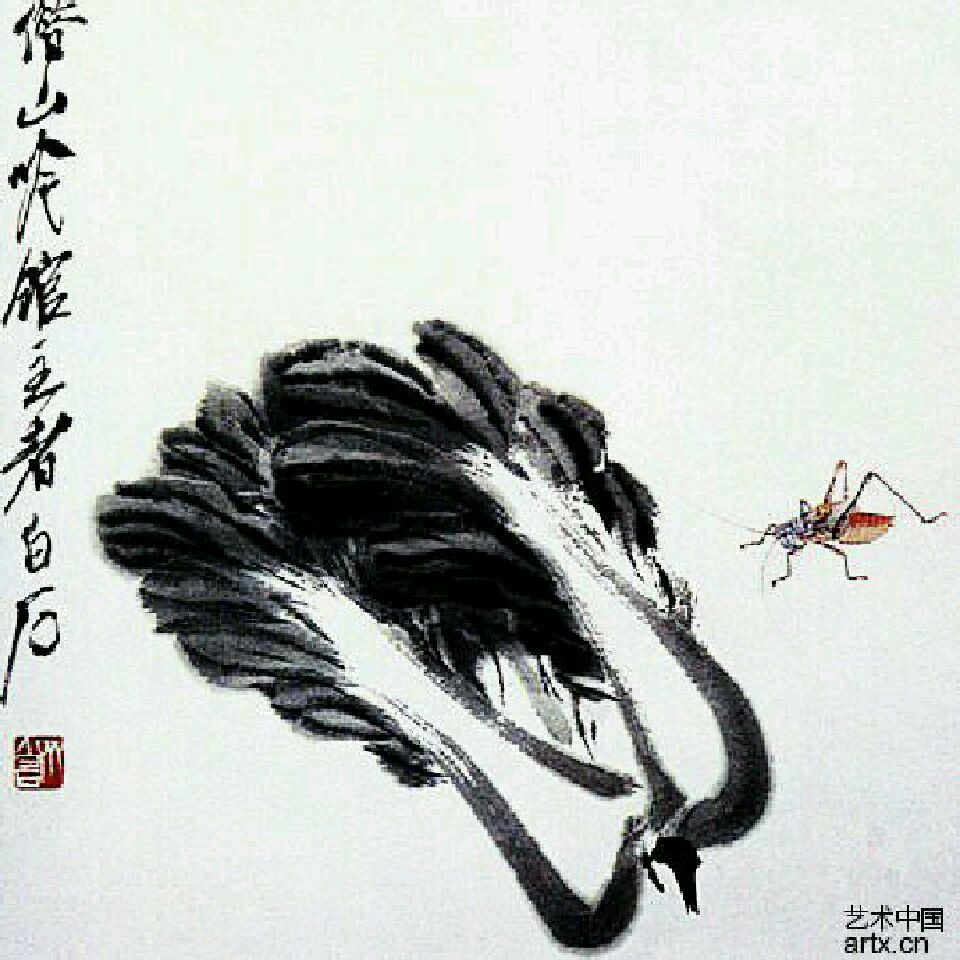 借山吟館主者白石
艺术中国
artx.cn